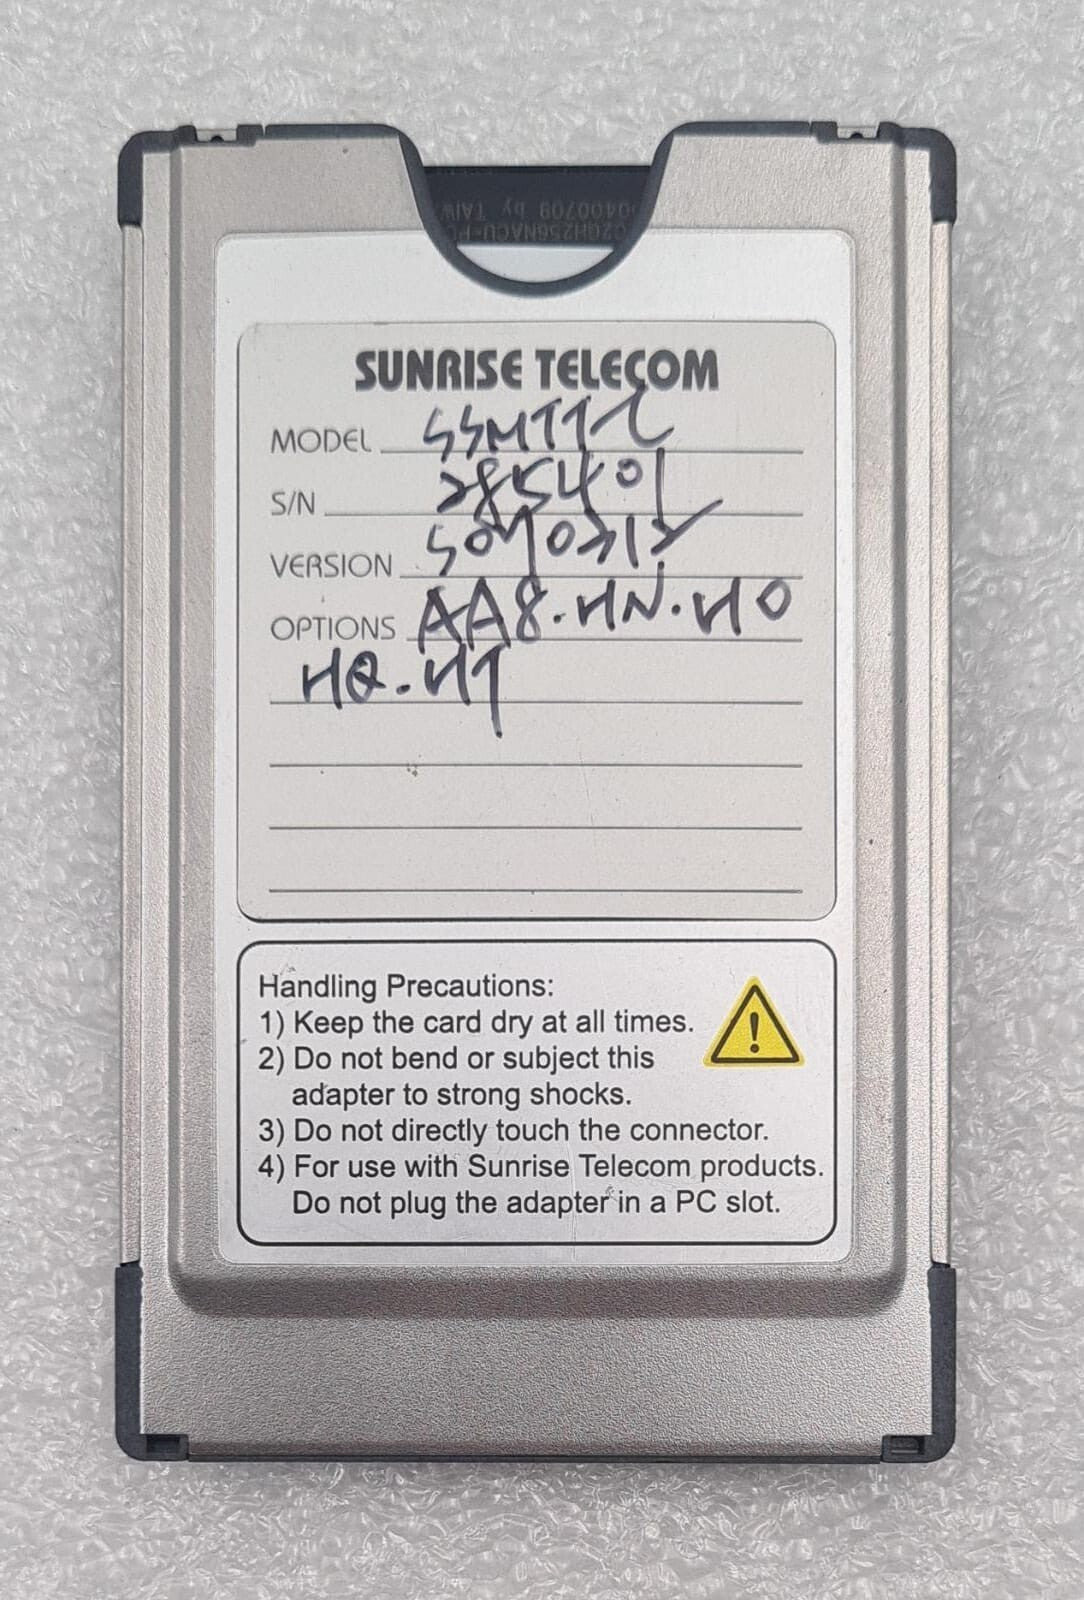 SUNRISE TELECOM
MODEL SSMTT-L
S/N 285401
VERSION
OPTIONS AA8.HN.HO
HQ.HT
Handling Precautions:
1) Keep the card dry at all times.
2) Do not bend or subject this
adapter to strong shocks.
3) Do not directly touch the connector.
4) For use with Sunrise Telecom products.
Do not plug the adapter in a PC slot.